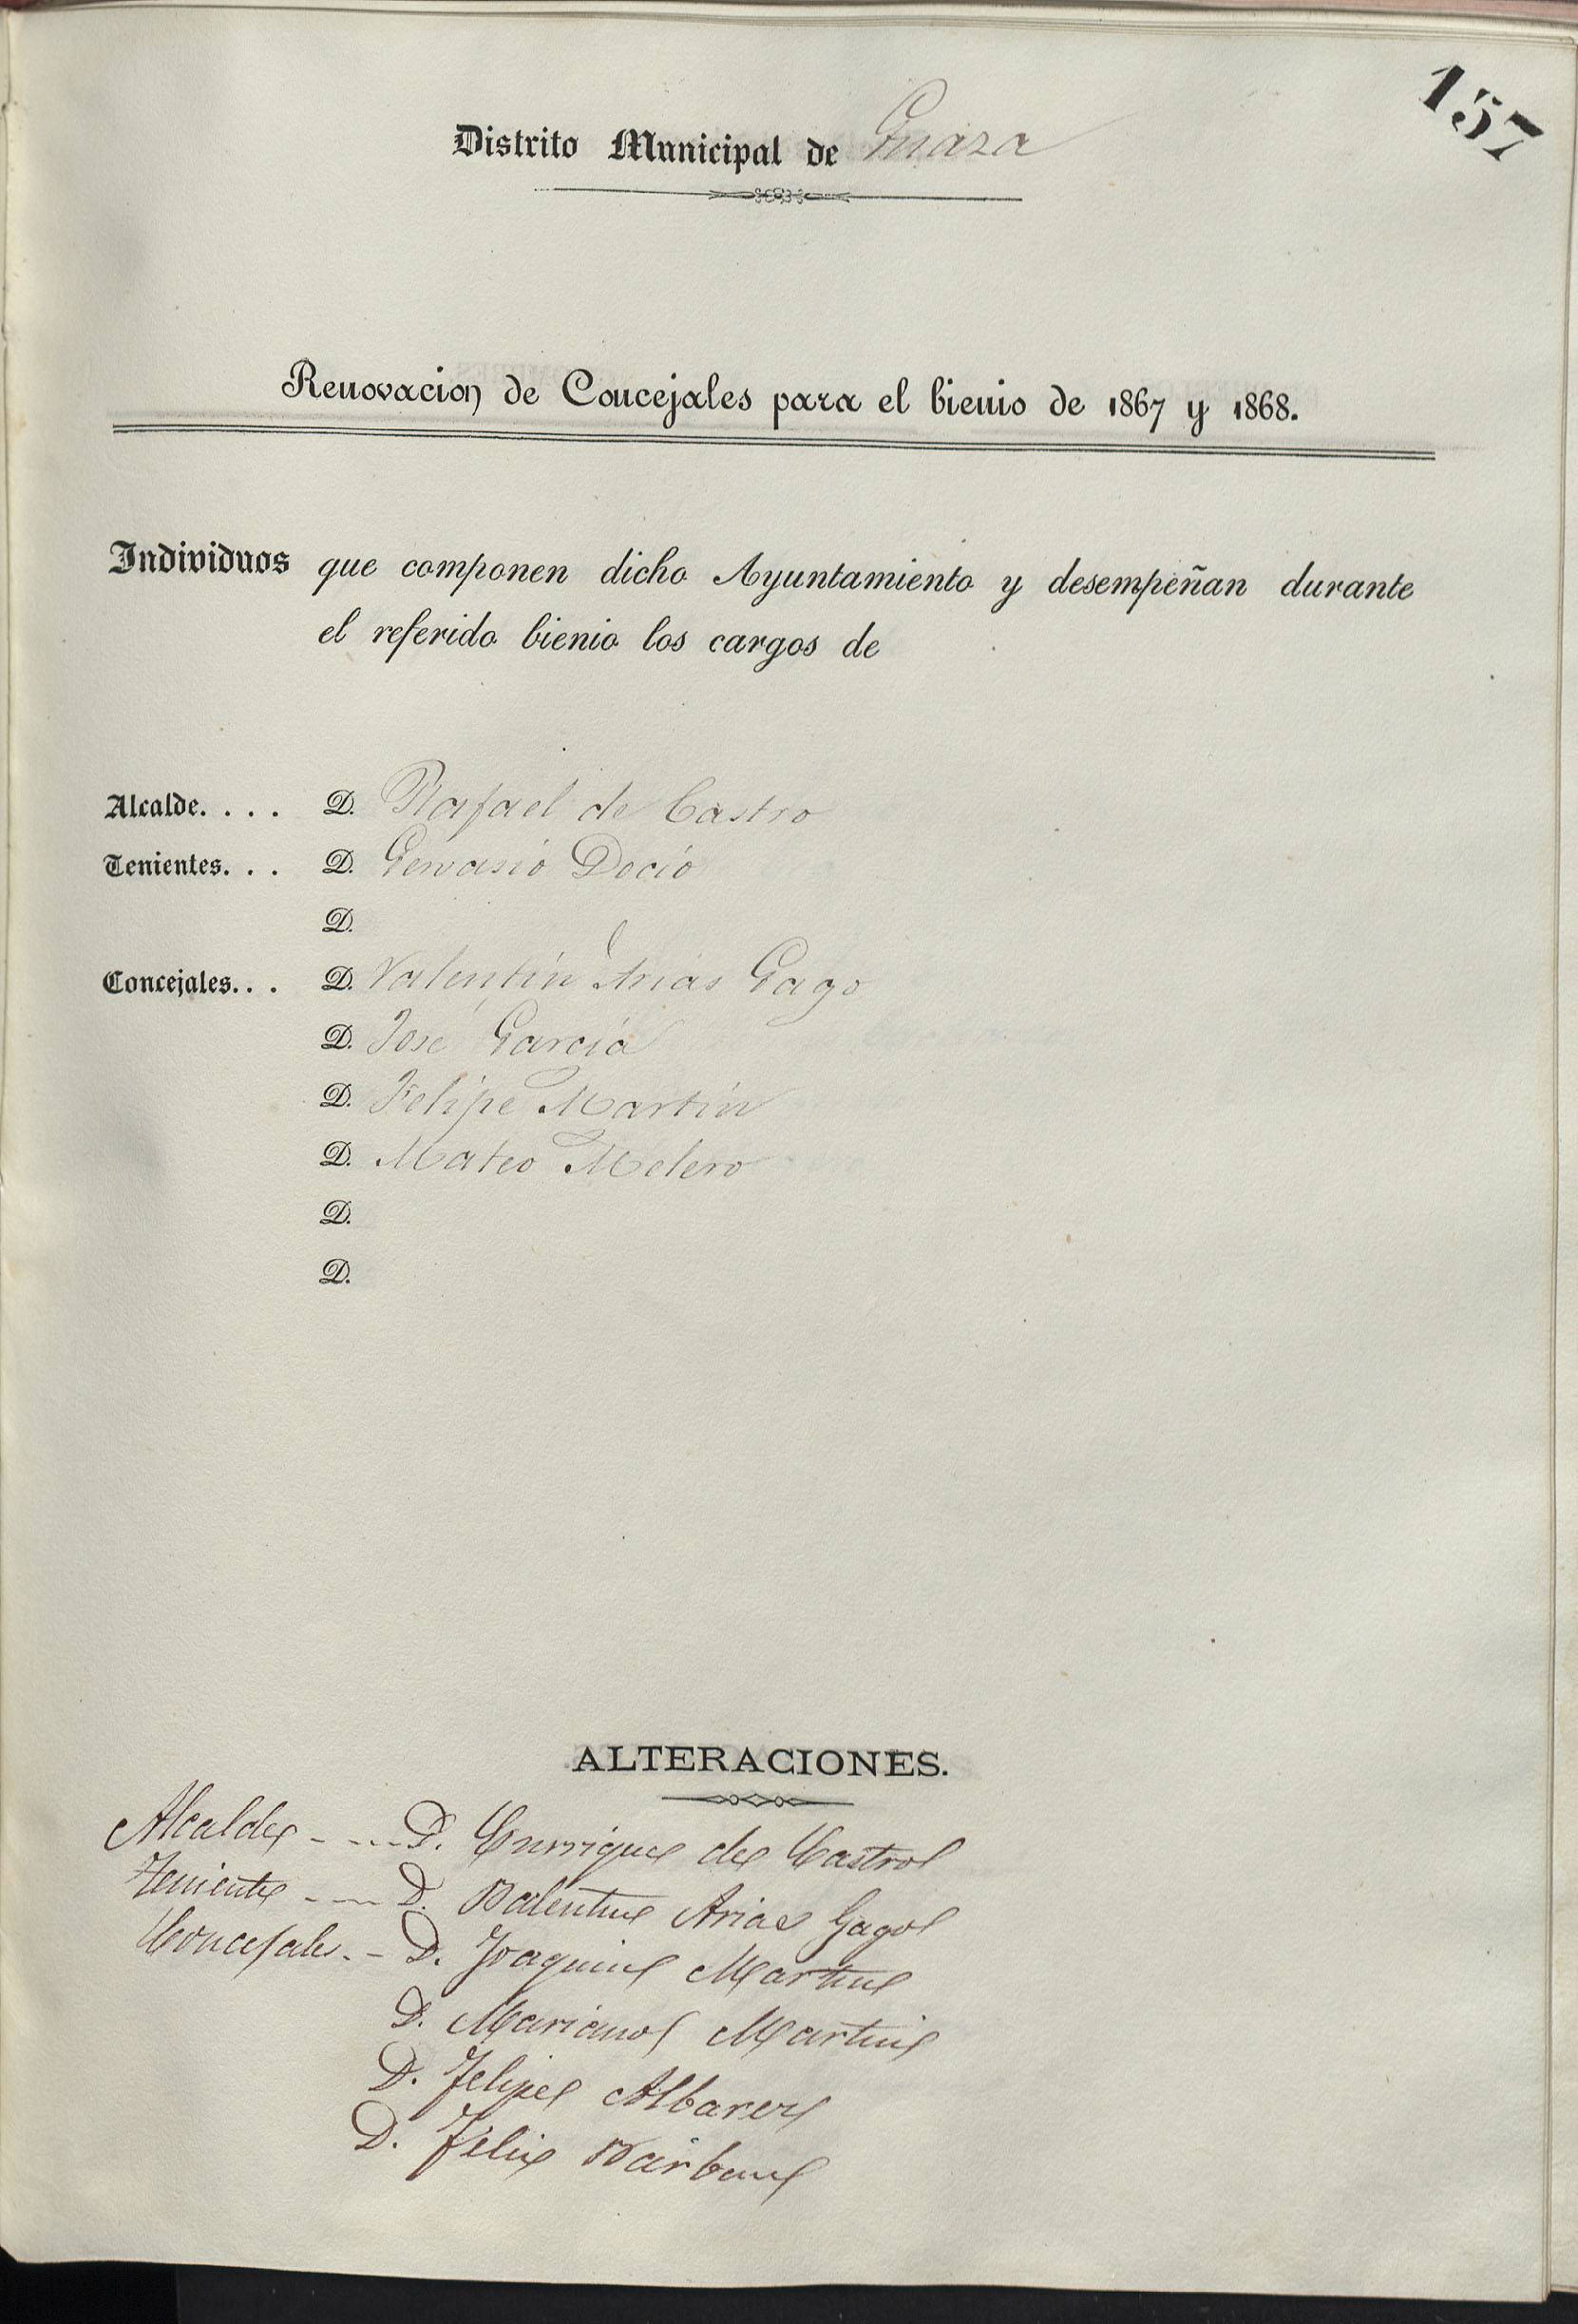 157
Distrito Municipal de Guaza
Renovacion de Concejales para el bienio de 1867 y 1868.
Individuos que componen dicho Ayuntamiento y desempeñan durante
el referido bienio los cargos de
Alcalde. . . . D. Rafael de Castro
Tenientes. . . D. Gervasio Docio
D.
Concejales. . . D. Valentin Arias Gago
D. José Garcia
D. Felipe Martin
D. Mateo Melero
D.
D.
ALTERACIONES.
Alcalde - - - D. Enrrique de Castro
Teniente - - - D. Balentin Arias Gago
Concejales. - D. Joaquin Martin
D. Mariano Martin
D. Felipe Albarez
D. Felix